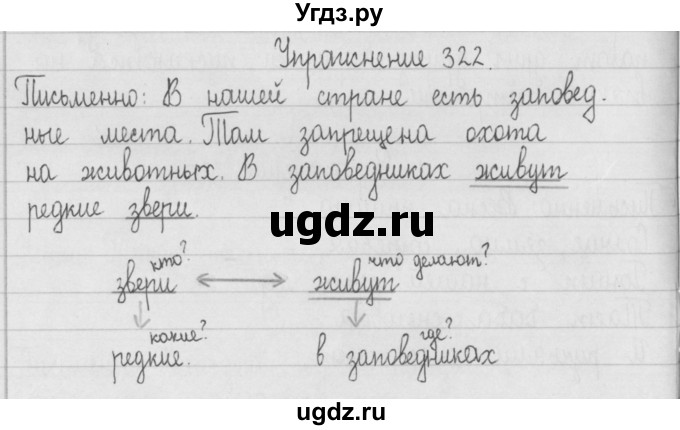 Угдз.ру
Упражнение 322.
Письменно: В нашей стране есть заповед.
ные места. Там запрещена охота
на животных. В заповедниках живут
редкие звери.
ugdz.ru
кто? что делают?
звери живут
какие? где?
редкие. в заповедниках
ugdz.ru
ugdz.ru